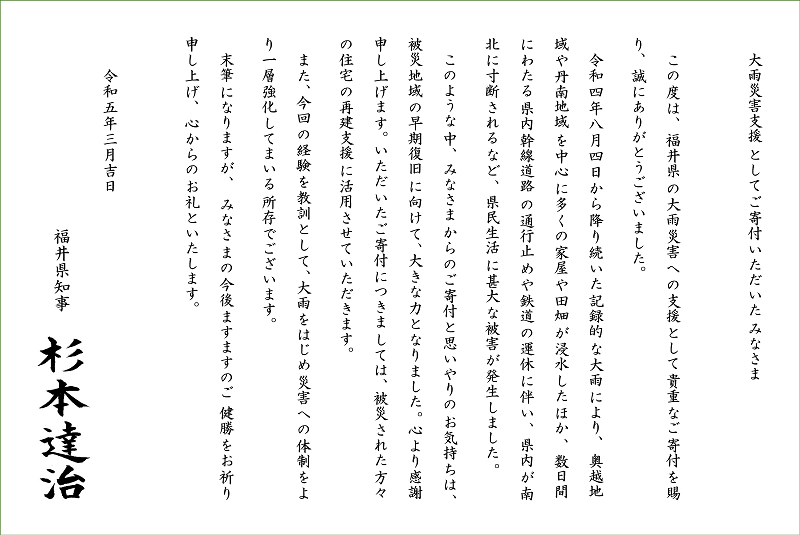 大雨災害支援としてご寄付いただいたみなさま
この度は、福井県の大雨災害への支援として貴重なご寄付を賜
り、誠にありがとうございました。
令和四年八月四日から降り続いた記録的な大雨により、奥越地
域や丹南地域を中心に多くの家屋や田畑が浸水したほか、数日間
にわたる県内幹線道路の通行止めや鉄道の運休に伴い、県内が南
北に寸断されるなど、県民生活に甚大な被害が発生しました。
このような中、みなさまからのご寄付と思いやりのお気持ちは、
被災地域の早期復旧に向けて、大きな力となりました。心より感謝
申し上げます。いただいたご寄付につきましては、被災された方々
の住宅の再建支援に活用させていただきます。
また、今回の経験を教訓として、大雨をはじめ災害への体制をよ
り一層強化してまいる所存でございます。
末筆になりますが、みなさまの今後ますますのご健勝をお祈り
申し上げ、心からのお礼といたします。
令和五年三月吉日
福井県知事 杉本達治